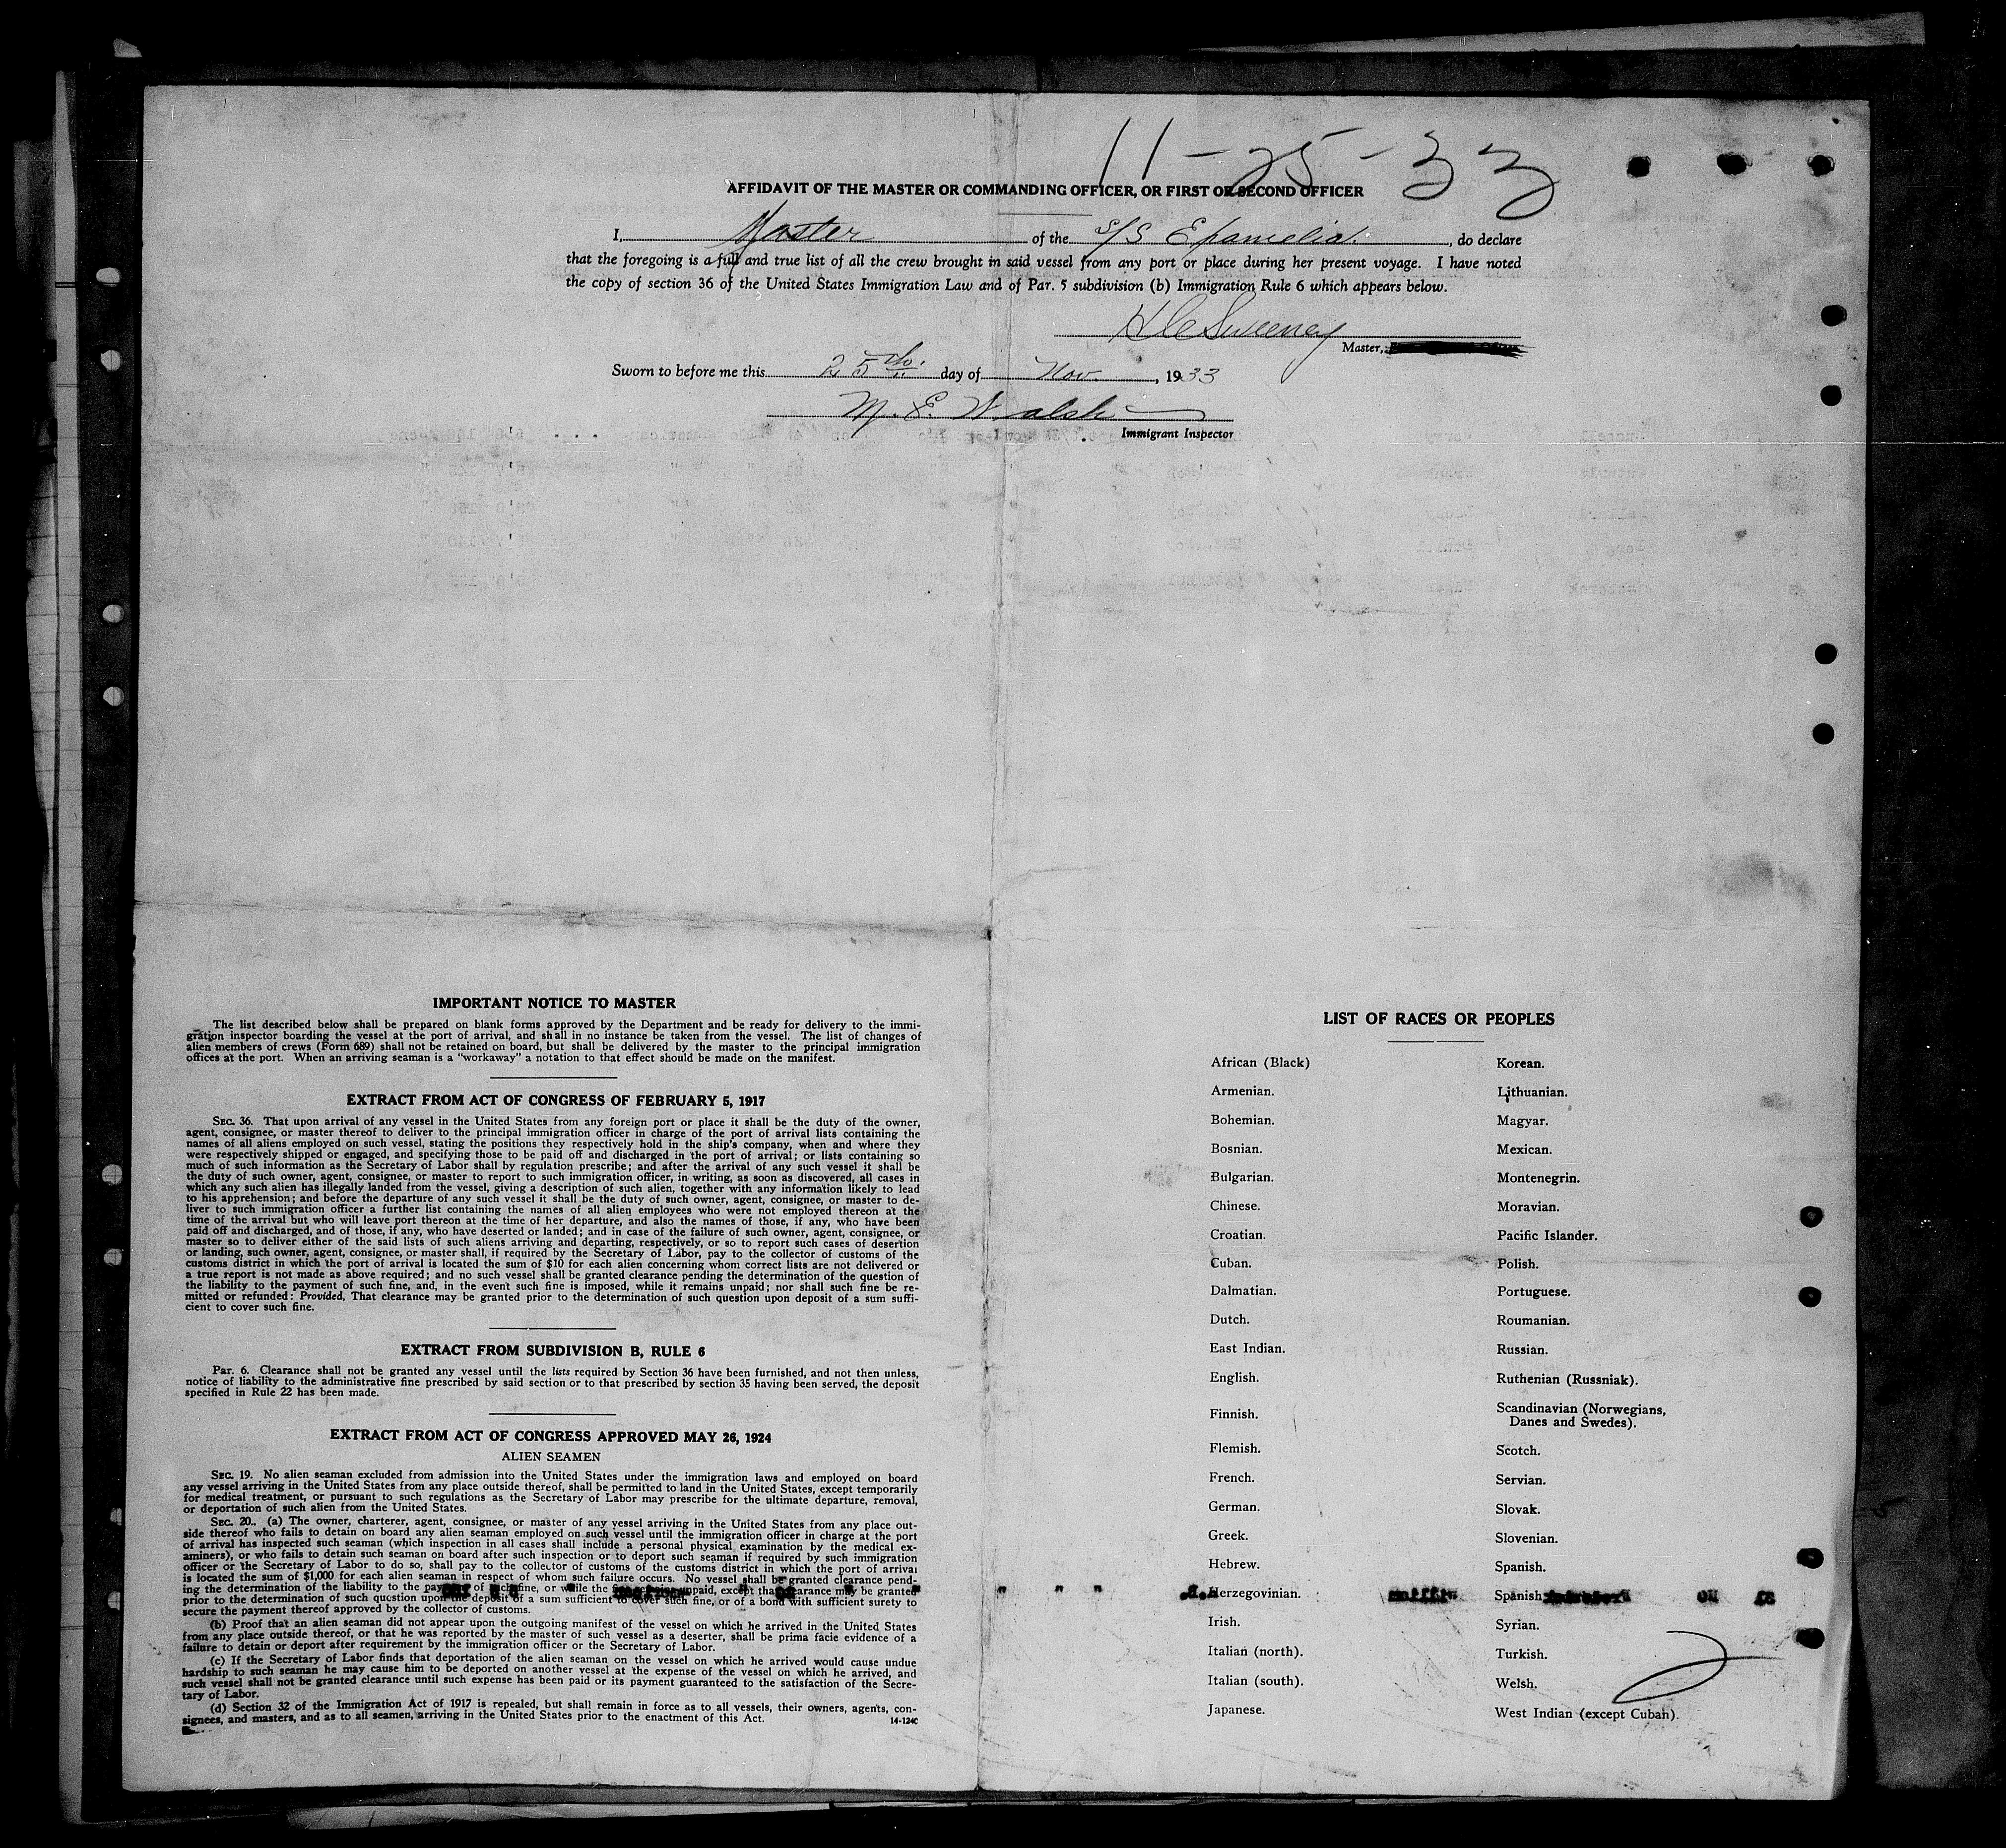 11-25-33
AFFIDAVIT OF THE MASTER OR COMMANDING OFFICER, OR FIRST OR SECOND OFFICER
I, Master of the S/S , do declare
that the foregoing is a full and true list of all the crew brought in said vessel from any port or place during her present voyage. I have noted
the copy of section 36 of the United States Immigration Law and of Par. 5 subdivision (b) Immigration Rule 6 which appears below.
Sweeney
Master,
Sworn to before me this 25th day of Nov. , 1933
M. E. Walsh
Immigrant Inspector
IMPORTANT NOTICE TO MASTER
The list described below shall be prepared on blank forms approved by the Department and be ready for delivery to the immi-
gration inspector boarding the vessel at the port of arrival, and shall in no instance be taken from the vessel. The list of changes of
alien members of crews (Form 689) shall not be retained on board, but shall be delivered by the master to the principal immigration
offices at the port. When an arriving seaman is a "workaway" a notation to that effect should be made on the manifest.
EXTRACT FROM ACT OF CONGRESS OF FEBRUARY 5, 1917
SEC. 36. That upon arrival of any vessel in the United States from any foreign port or place it shall be the duty of the owner,
agent, consignee, or master thereof to deliver to the principal immigration officer in charge of the port of arrival lists containing the
names of all aliens employed on such vessel, stating the positions they respectively hold in the ship's company, when and where they
were respectively shipped or engaged, and specifying those to be paid off and discharged in the port of arrival; or lists containing so
much of such information as the Secretary of Labor shall by regulation prescribe; and after the arrival of any such vessel it shall be
the duty of such owner, agent, consignee, or master to report to such immigration officer, in writing, as soon as discovered, all cases in
which any such alien has illegally landed from the vessel, giving a description of such alien, together with any information likely to lead
to his apprehension; and before the departure of any such vessel it shall be the duty of such owner, agent, consignee, or master to de-
liver to such immigration officer a further list containing the names of all alien employees who were not employed thereon at the
time of the arrival but who will leave port thereon at the time of her departure, and also the names of those, if any, who have been
paid off and discharged, and of those, if any, who have deserted or landed; and in case of the failure of such owner, agent, consignee, or
master so to deliver either of the said lists of such aliens arriving and departing, respectively, or so to report such cases of desertion
or landing, such owner, agent, consignee, or master shall, if required by the Secretary of Labor, pay to the collector of customs of the
customs district in which the port of arrival is located the sum of $10 for each alien concerning whom correct lists are not delivered or
a true report is not made as above required; and no such vessel shall be granted clearance pending the determination of the question of
the liability to the payment of such fine, and, in the event such fine is imposed, while it remains unpaid; nor shall such fine be re-
mitted or refunded: Provided, That clearance may be granted prior to the determination of such question upon deposit of a sum suffi-
cient to cover such fine.
EXTRACT FROM SUBDIVISION B, RULE 6
Par. 6. Clearance shall not be granted any vessel until the lists required by Section 36 have been furnished, and not then unless,
notice of liability to the administrative fine prescribed by said section or to that prescribed by section 35 having been served, the deposit
specified in Rule 22 has been made.
EXTRACT FROM ACT OF CONGRESS APPROVED MAY 26, 1924
ALIEN SEAMEN
SEC. 19. No alien seaman excluded from admission into the United States under the immigration laws and employed on board
any vessel arriving in the United States from any place outside thereof, shall be permitted to land in the United States, except temporarily
for medical treatment, or pursuant to such regulations as the Secretary of Labor may prescribe for the ultimate departure, removal,
or deportation of such alien from the United States.
SEC. 20. (a) The owner, charterer, agent, consignee, or master of any vessel arriving in the United States from any place out-
side thereof who fails to detain on board any alien seaman employed on such vessel until the immigration officer in charge at the port
of arrival has inspected such seaman (which inspection in all cases shall include a personal physical examination by the medical ex-
aminers), or who fails to detain such seaman on board after such inspection or to deport such seaman if required by such immigration
officer or the Secretary of Labor to do so, shall pay to the collector of customs of the customs district in which the port of arrival
is located the sum of $1,000 for each alien seaman in respect of whom such failure occurs. No vessel shall be granted clearance pend-
ing the determination of the liability to the payment of such fine, or while the fine remains unpaid, except that clearance may be granted
prior to the determination of such question upon the deposit of a sum sufficient to cover such fine, or of a bond with sufficient surety to
secure the payment thereof approved by the collector of customs.
(b) Proof that an alien seaman did not appear upon the outgoing manifest of the vessel on which he arrived in the United States
from any place outside thereof, or that he was reported by the master of such vessel as a deserter, shall be prima facie evidence of a
failure to detain or deport after requirement by the immigration officer or the Secretary of Labor.
(c) If the Secretary of Labor finds that deportation of the alien seaman on the vessel on which he arrived would cause undue
hardship to such seaman he may cause him to be deported on another vessel at the expense of the vessel on which he arrived, and
such vessel shall not be granted clearance until such expense has been paid or its payment guaranteed to the satisfaction of the Secre-
tary of Labor.
(d) Section 32 of the Immigration Act of 1917 is repealed, but shall remain in force as to all vessels, their owners, agents, con-
signees, and masters, and as to all seamen, arriving in the United States prior to the enactment of this Act.
14-124C
LIST OF RACES OR PEOPLES
African (Black)
Armenian.
Bohemian.
Bosnian.
Bulgarian.
Chinese.
Croatian.
Cuban.
Dalmatian.
Dutch.
East Indian.
English.
Finnish.
Flemish.
French.
German.
Greek.
Hebrew.
Herzegovinian.
Irish.
Italian (north).
Italian (south).
Japanese.
Korean.
Lithuanian.
Magyar.
Mexican.
Montenegrin.
Moravian.
Pacific Islander.
Polish.
Portuguese.
Roumanian.
Russian.
Ruthenian (Russniak).
Scandinavian (Norwegians,
Danes and Swedes).
Scotch.
Servian.
Slovak.
Slovenian.
Spanish.
Spanish
Syrian.
Turkish.
Welsh.
West Indian (except Cuban).